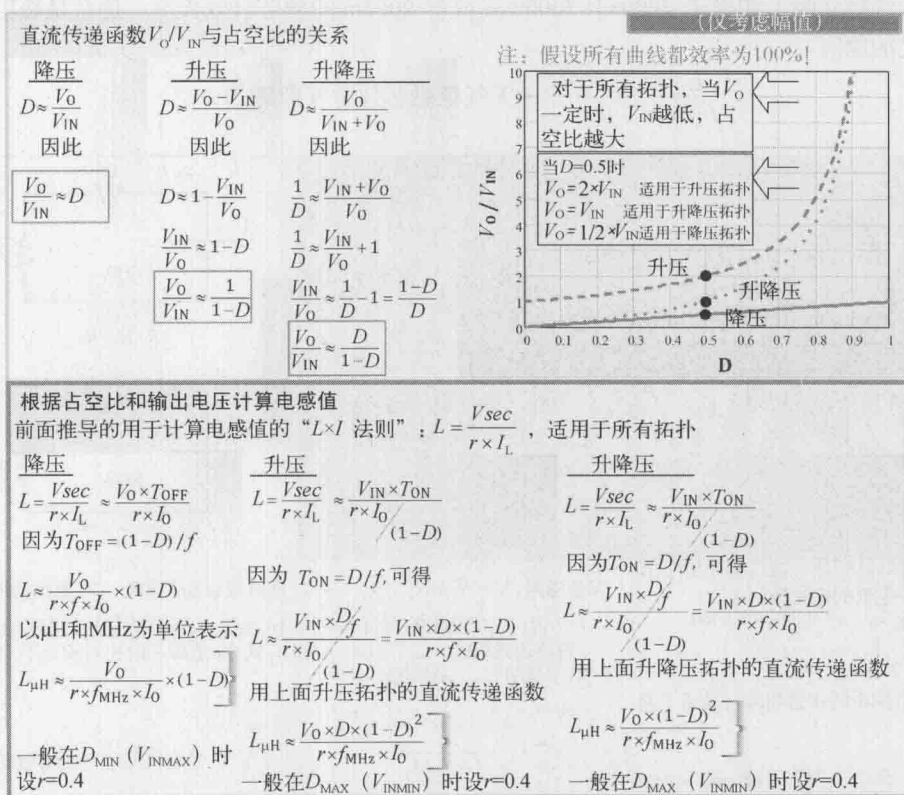 (仅考虑幅值)
直流传递函数V_O/V_IN与占空比的关系
注：假设所有曲线都效率为100%!
降压
D≈V_O/V_IN
因此
V_O/V_IN≈D
升压
D≈(V_O-V_IN)/V_O
因此
D≈1-V_IN/V_O
V_IN/V_O≈1-D
V_O/V_IN≈1/(1-D)
升降压
D≈V_O/(V_IN+V_O)
因此
1/D≈(V_IN+V_O)/V_O
1/D≈V_IN/V_O+1
V_IN/V_O≈1/D-1=(1-D)/D
V_O/V_IN≈D/(1-D)
V_O/V_IN
10
9
8
7
6
5
4
3
2
1
0
对于所有拓扑，当V_O
一定时，V_IN越低，占
空比越大
当D=0.5时
V_O=2×V_IN 适用于升压拓扑
V_O=V_IN 适用于升降压拓扑
V_O=1/2×V_IN适用于降压拓扑
升压
升降压
降压
0 0.1 0.2 0.3 0.4 0.5 0.6 0.7 0.8 0.9 1
D
根据占空比和输出电压计算电感值
前面推导的用于计算电感值的“L×I 法则”：L=Vsec/(r×I_L)，适用于所有拓扑
降压
L=Vsec/(r×I_L)≈(V_O×T_OFF)/(r×I_O)
因为T_OFF=(1-D)/f
L≈V_O/(r×f×I_O)×(1-D)
以μH和MHz为单位表示
L_μH≈V_O/(r×f_MHz×I_O)×(1-D)
一般在D_MIN（V_INMAX）时
设r=0.4
升压
L=Vsec/(r×I_L)≈(V_IN×T_ON)/(r×I_O/(1-D))
因为 T_ON=D/f,可得
L≈(V_IN×D/f)/(r×I_O/(1-D))=(V_IN×D×(1-D))/(r×f×I_O)
用上面升压拓扑的直流传递函数
L_μH≈(V_O×D×(1-D)²)/(r×f_MHz×I_O)
一般在D_MAX（V_INMIN）时设r=0.4
升降压
L=Vsec/(r×I_L)≈(V_IN×T_ON)/(r×I_O/(1-D))
因为T_ON=D/f, 可得
L≈(V_IN×D/f)/(r×I_O/(1-D))=(V_IN×D×(1-D))/(r×f×I_O)
用上面升降压拓扑的直流传递函数
L_μH≈(V_O×(1-D)²)/(r×f_MHz×I_O)
一般在D_MAX（V_INMIN）时设r=0.4